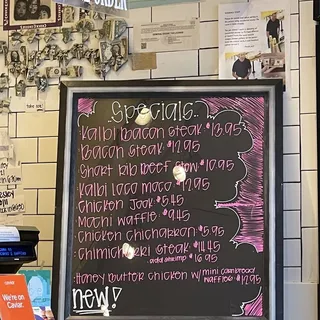 ORDER
Specials
Kalbi Bacon Steak $13.95
Bacon Steak $12.95
Short Rib Beef Stew $10.95
Kalbi Loco Moco $12.95
Chicken Jook $5.45
Mochi Waffle $9.45
Chicken Chicharron $5.95
Chimichurri Steak $14.45
add shrimp $16.95
Honey Butter Chicken w/ mini cornbread
waffles $12.95
NEW!
We're on
Caviar.